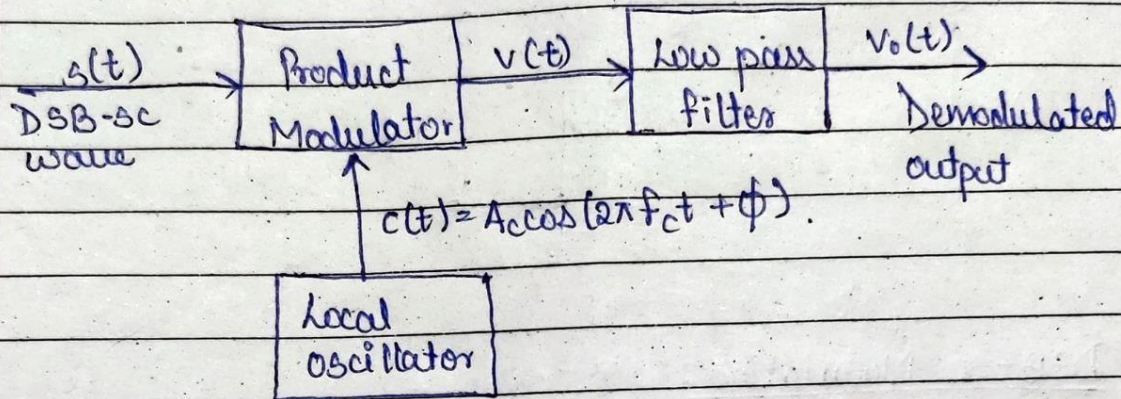 s(t)
DSB-SC
wave
Product
Modulator
v(t)
Low pass
filter
Vo(t)
Demodulated
output
c(t) = Ac cos (2π fct + ϕ).
Local
oscillator